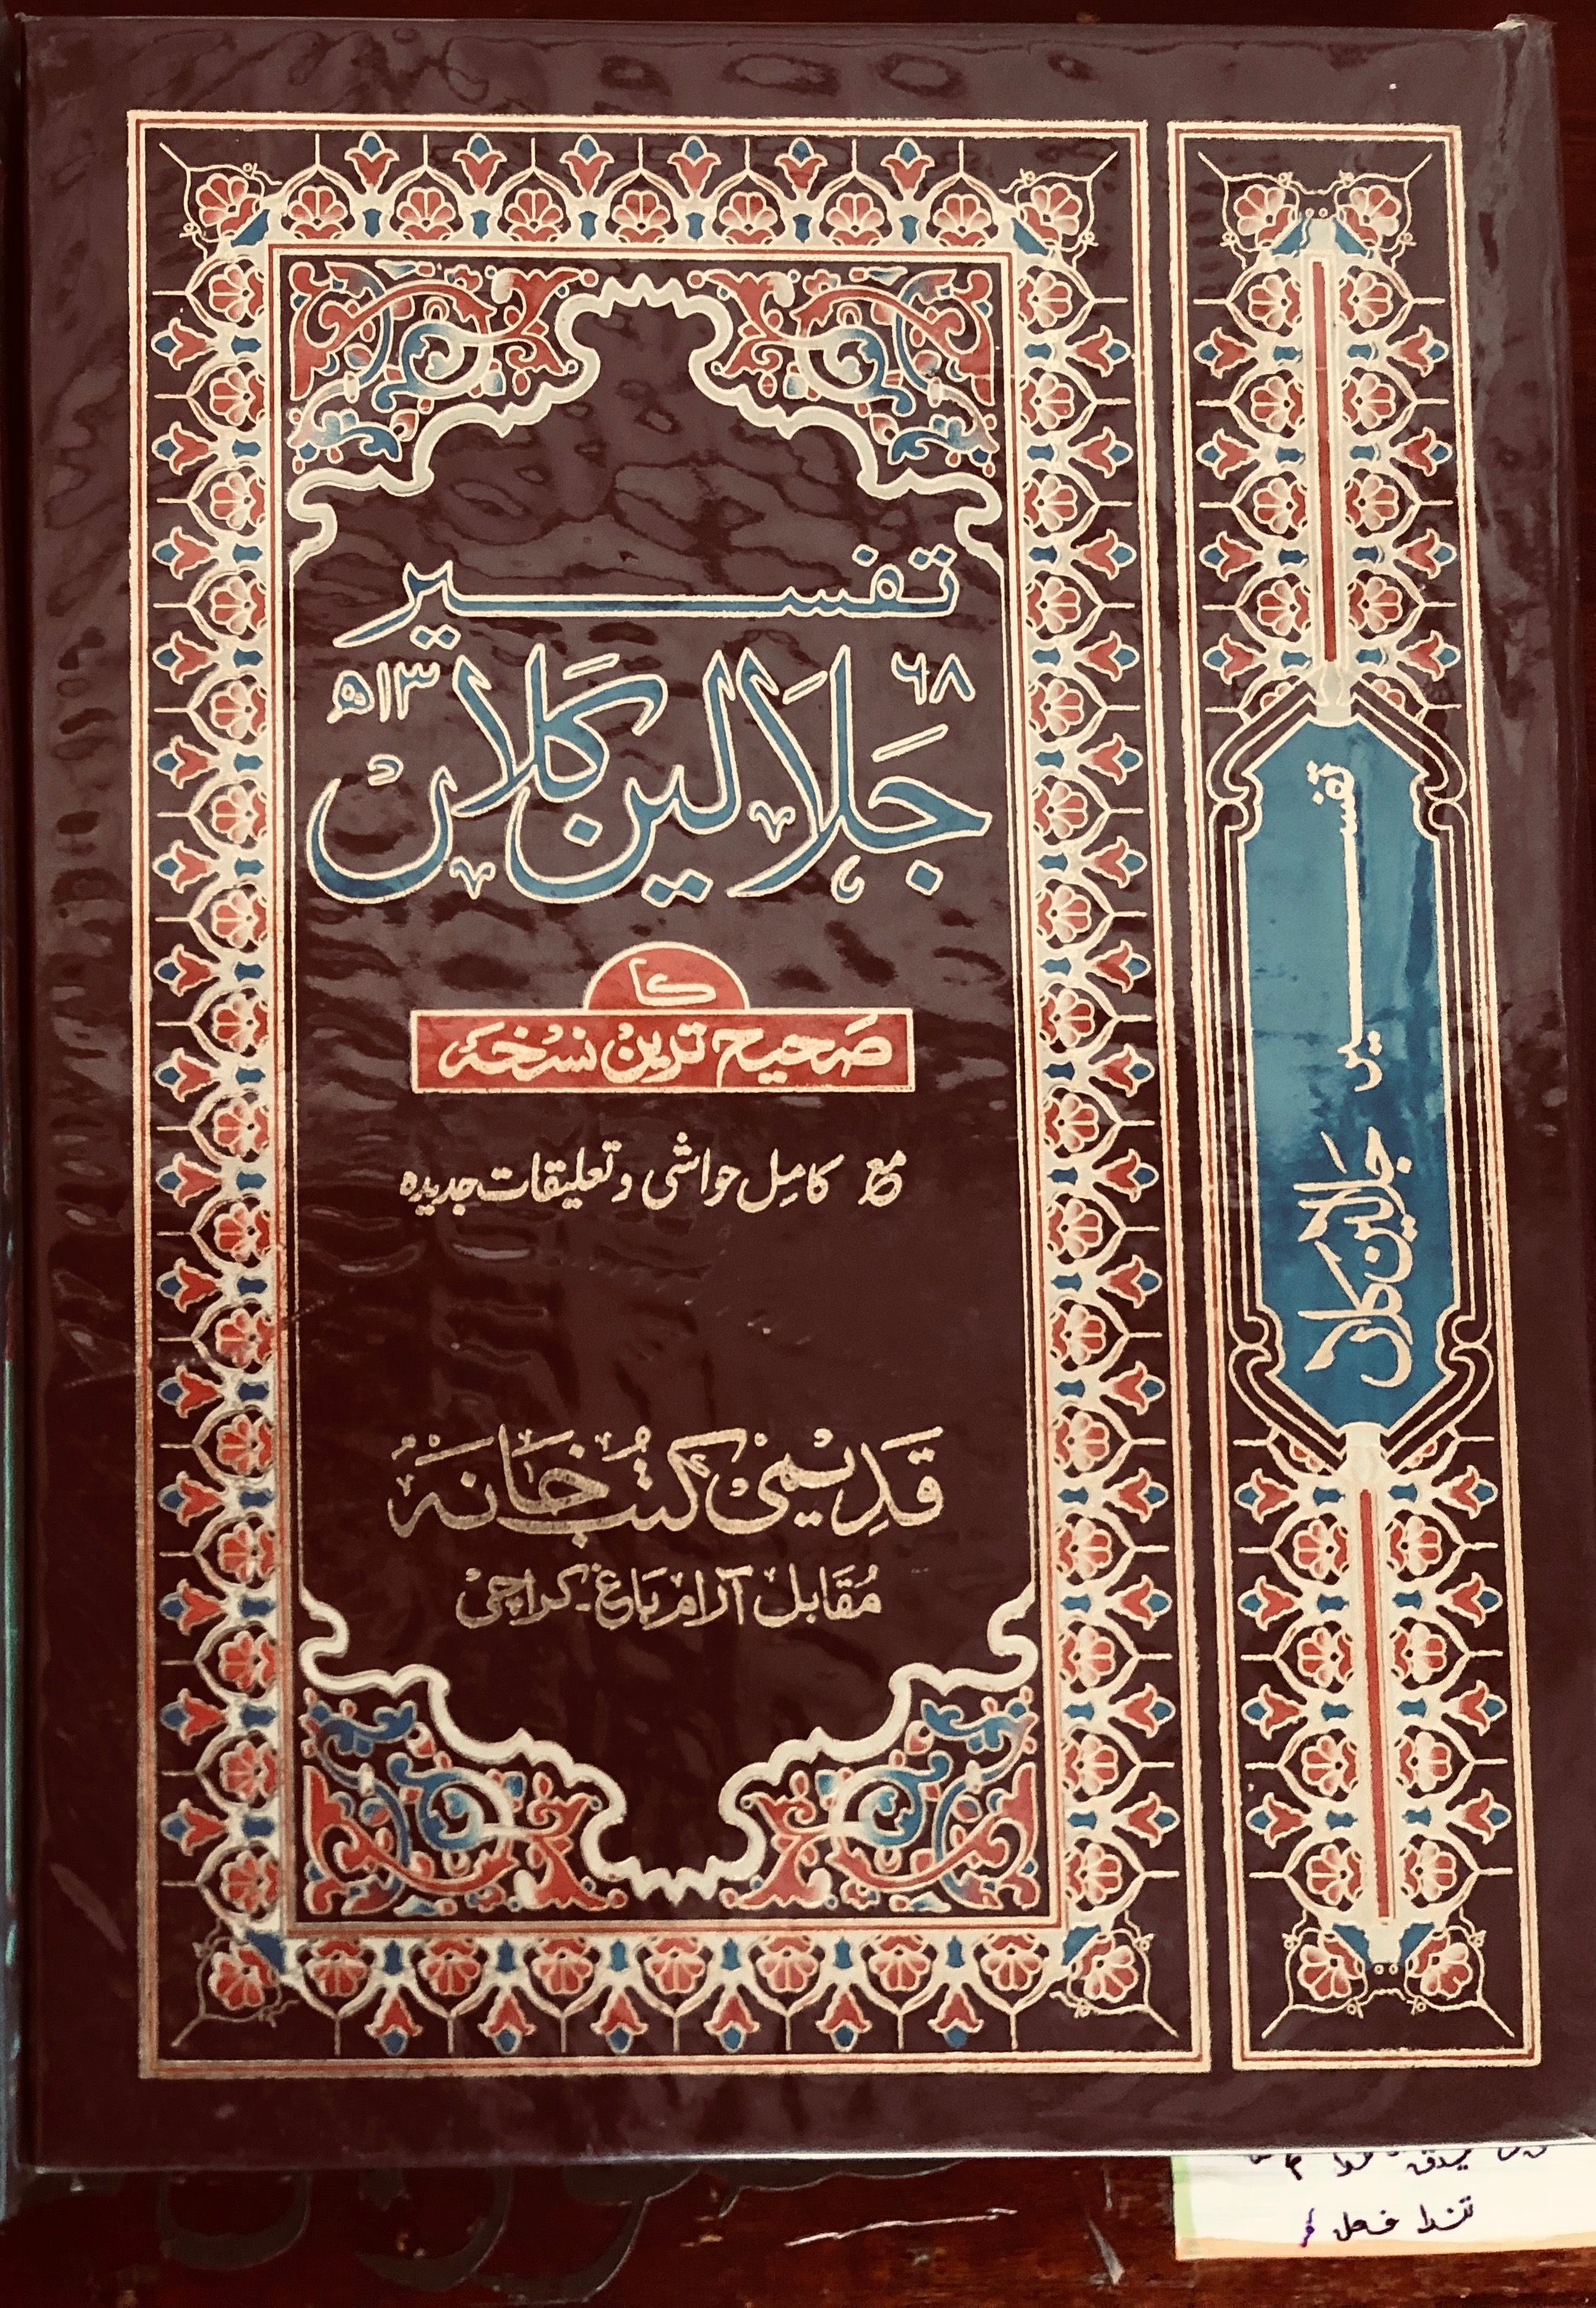 تفسیر
جَلَالین کلاں
۶۸
۱۳ھ
کا
صَحیح ترین نسخہ
مع کامِل حواشی و تعلیقات جدیدہ
قَدِیمی کُتب خَانَہ
مُقَابل آرَام بَاغ۔کراچی
تفسیر جلالین کلاں